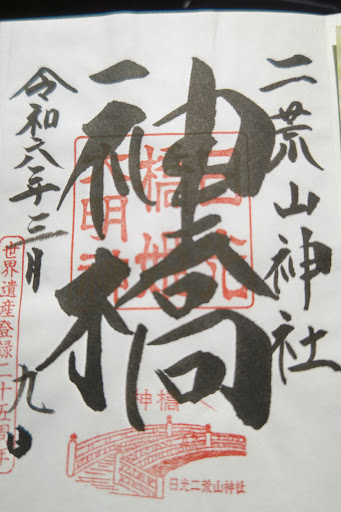 二荒山神社
神橋
日光
橋姫
大明神
令和六年三月
九日
世界遺産登録二十五周年
神橋
日光二荒山神社